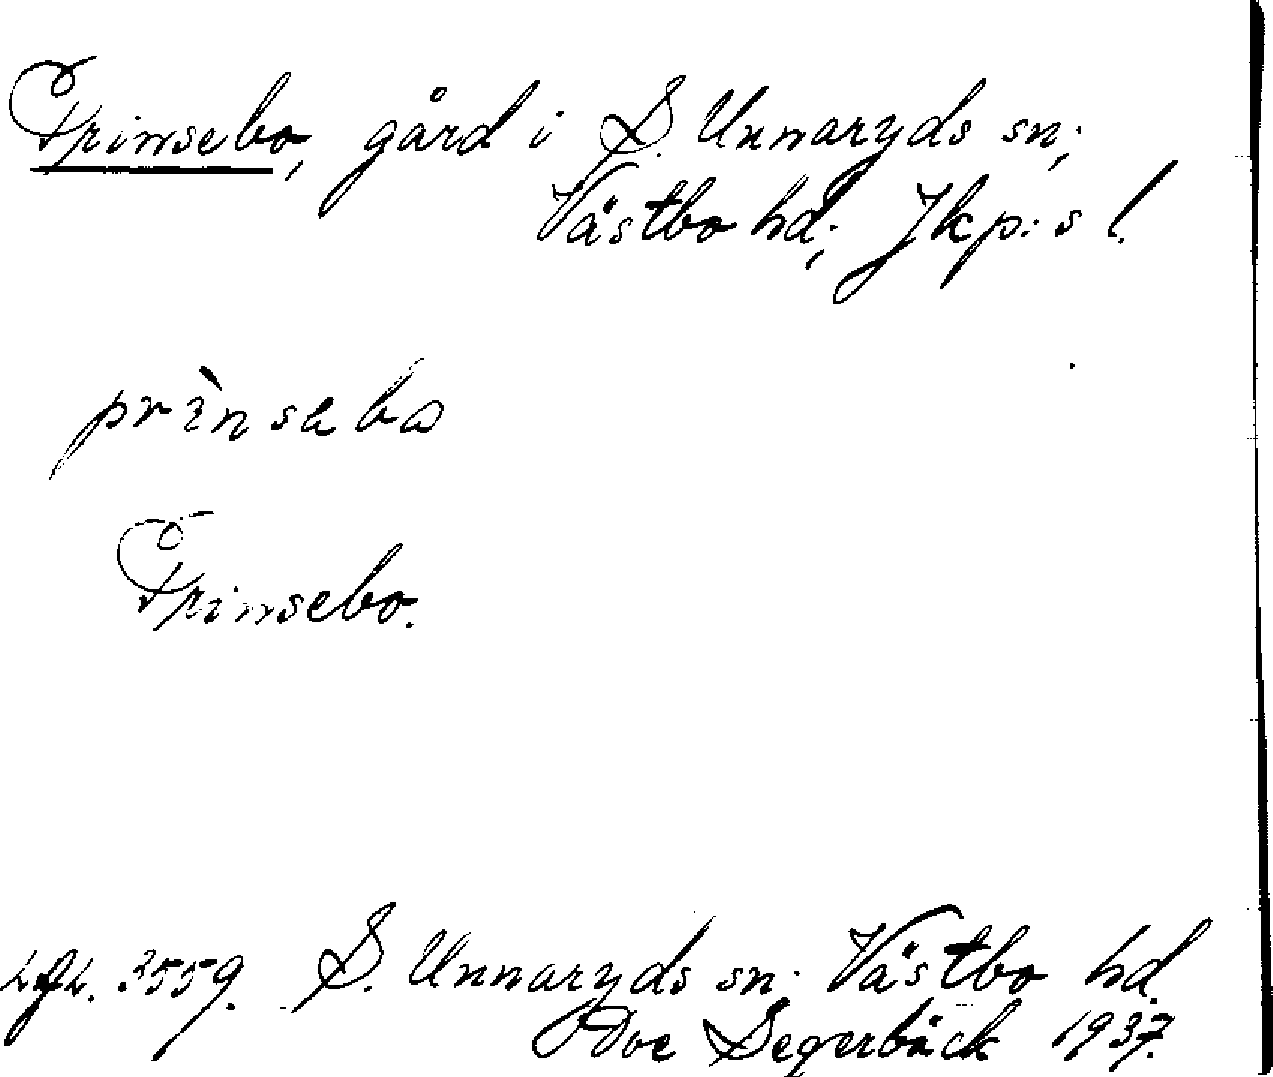 Prinsebo, gård i S. Unnaryds sn;
Västbo hd; Jkp:s l.
prìnseba
Prinsebo.
3559. S. Unnaryds sn. Västbo hd.
Segerbäck 1937.